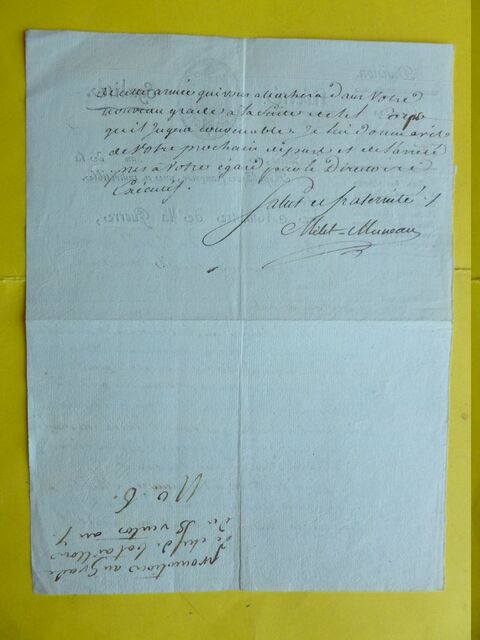 de cette armée qui vous attachera dans votre
nouveau grade à la suite de tel Corps
qu'il jugera convenable. Je lui donne avis
de votre prochain départ et de l'arrêté
pris à votre égard par le Directoire
Exécutif.
Salut et fraternité
Milet-Mureau
No. 6.
promotions au Grade
de chef de bataillon
du ventos an 7.